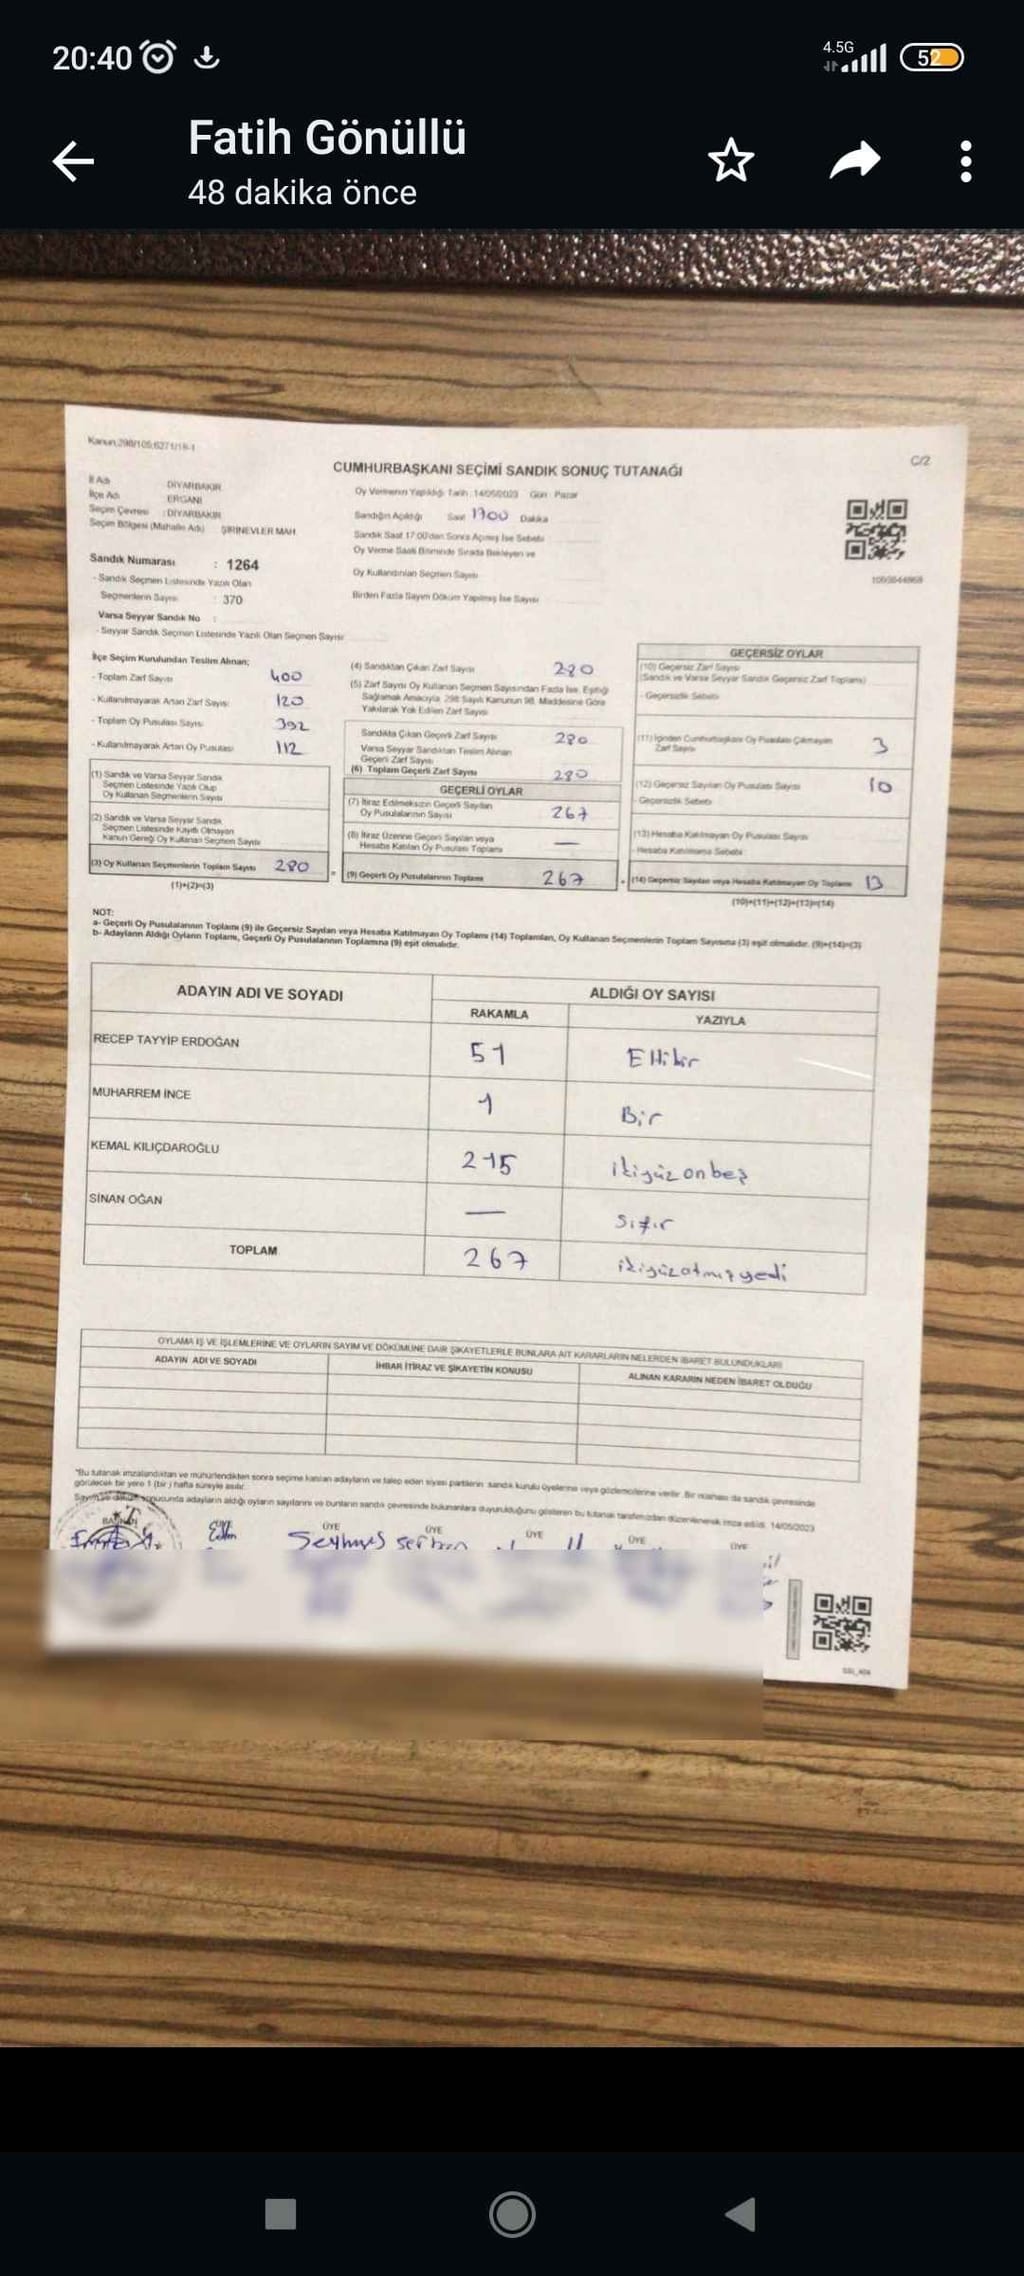 20:40
4.5G
52
Fatih Gönüllü
48 dakika önce
Kanun:298/105;6271/18-1
C/2
CUMHURBAŞKANI SEÇİMİ SANDIK SONUÇ TUTANAĞI
İl Adı DİYARBAKIR
İlçe Adı ERGANİ
Seçim Çevresi : DİYARBAKIR
Seçim Bölgesi (Mahalle Adı) ŞİRİNEVLER MAH
Oy Vermenin Yapıldığı Tarih : 14/05/2023 Gün Pazar
Sandığın Açıldığı Saat 1700 Dakika
Sandık Saat 17:00'dan Sonra Açılmış İse Sebebi
Oy Verme Saati Bitiminde Sırada Bekleyen ve
Oy Kullandırılan Seçmen Sayısı
Birden Fazla Sayım Döküm Yapılmış İse Sayısı
Sandık Numarası : 1264
- Sandık Seçmen Listesinde Yazılı Olan
Seçmenlerin Sayısı : 370
Varsa Seyyar Sandık No :
- Seyyar Sandık Seçmen Listesinde Yazılı Olan Seçmen Sayısı
İlçe Seçim Kurulundan Teslim Alınan;
- Toplam Zarf Sayısı 400
- Kullanılmayarak Artan Zarf Sayısı 120
- Toplam Oy Pusulası Sayısı 392
- Kullanılmayarak Artan Oy Pusulası 112
(1) Sandık ve Varsa Seyyar Sandık
Seçmen Listesinde Yazılı Olup
Oy Kullanan Seçmenlerin Sayısı
(2) Sandık ve Varsa Seyyar Sandık
Seçmen Listesinde Kayıtlı Olmayan
Kanun Gereği Oy Kullanan Seçmen Sayısı
(3) Oy Kullanan Seçmenlerin Toplam Sayısı 280
(1)+(2)=(3)
(4) Sandıktan Çıkan Zarf Sayısı 280
(5) Zarf Sayısı Oy Kullanan Seçmen Sayısından Fazla İse, Eşitliği
Sağlamak Amacıyla, 298 Sayılı Kanunun 98. Maddesine Göre
Yakılarak Yok Edilen Zarf Sayısı
Sandıkta Çıkan Geçerli Zarf Sayısı 280
Varsa Seyyar Sandıktan Teslim Alınan
Geçerli Zarf Sayısı
(6) Toplam Geçerli Zarf Sayısı 280
GEÇERLİ OYLAR
(7) İtiraz Edilmeksizin Geçerli Sayılan
Oy Pusulalarının Sayısı 267
(8) İtiraz Üzerine Geçerli Sayılan veya
Hesaba Katılan Oy Pusulası Toplamı —
(9) Geçerli Oy Pusulalarının Toplamı 267
GEÇERSİZ OYLAR
(10) Geçersiz Zarf Sayısı
(Sandık ve Varsa Seyyar Sandık Geçersiz Zarf Toplamı)
- Geçersizlik Sebebi
(11) İçinden Cumhurbaşkanı Oy Pusulası Çıkmayan
Zarf Sayısı 3
(12) Geçersiz Sayılan Oy Pusulası Sayısı 10
- Geçersizlik Sebebi
(13) Hesaba Katılmayan Oy Pusulası Sayısı
- Hesaba Katılmama Sebebi
(14) Geçersiz Sayılan veya Hesaba Katılmayan Oy Toplamı 13
(10)+(11)+(12)+(13)=(14)
NOT:
a- Geçerli Oy Pusulalarının Toplamı (9) ile Geçersiz Sayılan veya Hesaba Katılmayan Oy Toplamı (14) Toplamları, Oy Kullanan Seçmenlerin Toplam Sayısına (3) eşit olmalıdır. (9)+(14)=(3)
b- Adayların Aldığı Oyların Toplamı, Geçerli Oy Pusulalarının Toplamına (9) eşit olmalıdır.
ADAYIN ADI VE SOYADI
ALDIĞI OY SAYISI
RAKAMLA YAZIYLA
RECEP TAYYİP ERDOĞAN 51 Ellibir
MUHARREM İNCE 1 Bir
KEMAL KILIÇDAROĞLU 215 ikiyüz onbeş
SİNAN OĞAN — Sıfır
TOPLAM 267 ikiyüzatmışyedi
OYLAMA İŞ VE İŞLEMLERİNE VE OYLARIN SAYIM VE DÖKÜMÜNE DAİR ŞİKAYETLERLE BUNLARA AİT KARARLARIN NELERDEN İBARET BULUNDUKLARI
ADAYIN ADI VE SOYADI
İHBAR İTİRAZ VE ŞİKAYETİN KONUSU
ALINAN KARARIN NEDEN İBARET OLDUĞU
*Bu tutanak imzalandıktan ve mühürlendikten sonra seçime katılan adayların ve talep eden siyasi partilerin sandık kurulu üyelerine veya gözlemcilerine verilir. Bir nüshası da sandık çevresinde
görülecek bir yere 1 (bir) hafta süreyle asılır.
Sayım ve döküm sonucunda adayların aldığı oyların sayılarını ve bunların sandık çevresinde bulunanlara duyurulduğunu gösteren bu tutanak tarafımızdan düzenlenerek imza edildi. 14/05/2023
BAŞKAN
ÜYE ÜYE ÜYE ÜYE ÜYE
Seyhmus serhan